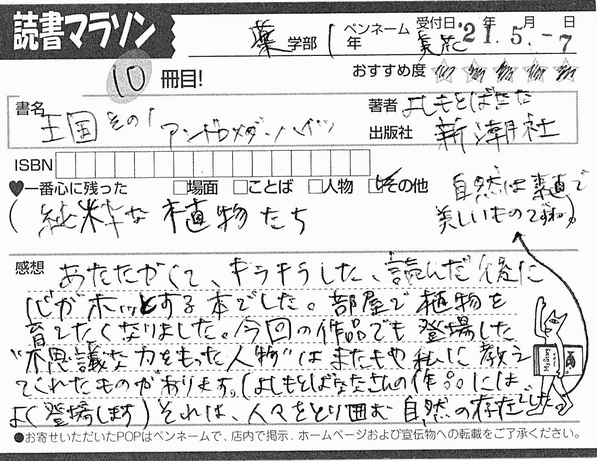 読書マラソン
薬学部 1年
ペンネーム
受付日 '21年5月-7日
10冊目!
おすすめ度
書名 王国 その1 アンドロメダ・ハイツ
著者 よしもとばなな
出版社 新潮社
ISBN
♥一番心に残った □場面 □ことば □人物 □その他
(純粋な植物たち
自然は素直で
美しいものですね)
感想 あたたかくて、キラキラした、読んだ後に
心がホッとする本でした。部屋で植物を
育てたくなりました。今回の作品でも登場した
"不思議な力をもった人物"はまたもや私に教え
てくれたものがあります。(よしもとばななさんの作品には
よく登場します)それは、人々をとり囲む自然の存在でした
●お寄せいただいたPOPはペンネームで、店内で掲示、ホームページおよび宣伝物への転載をご了承ください。